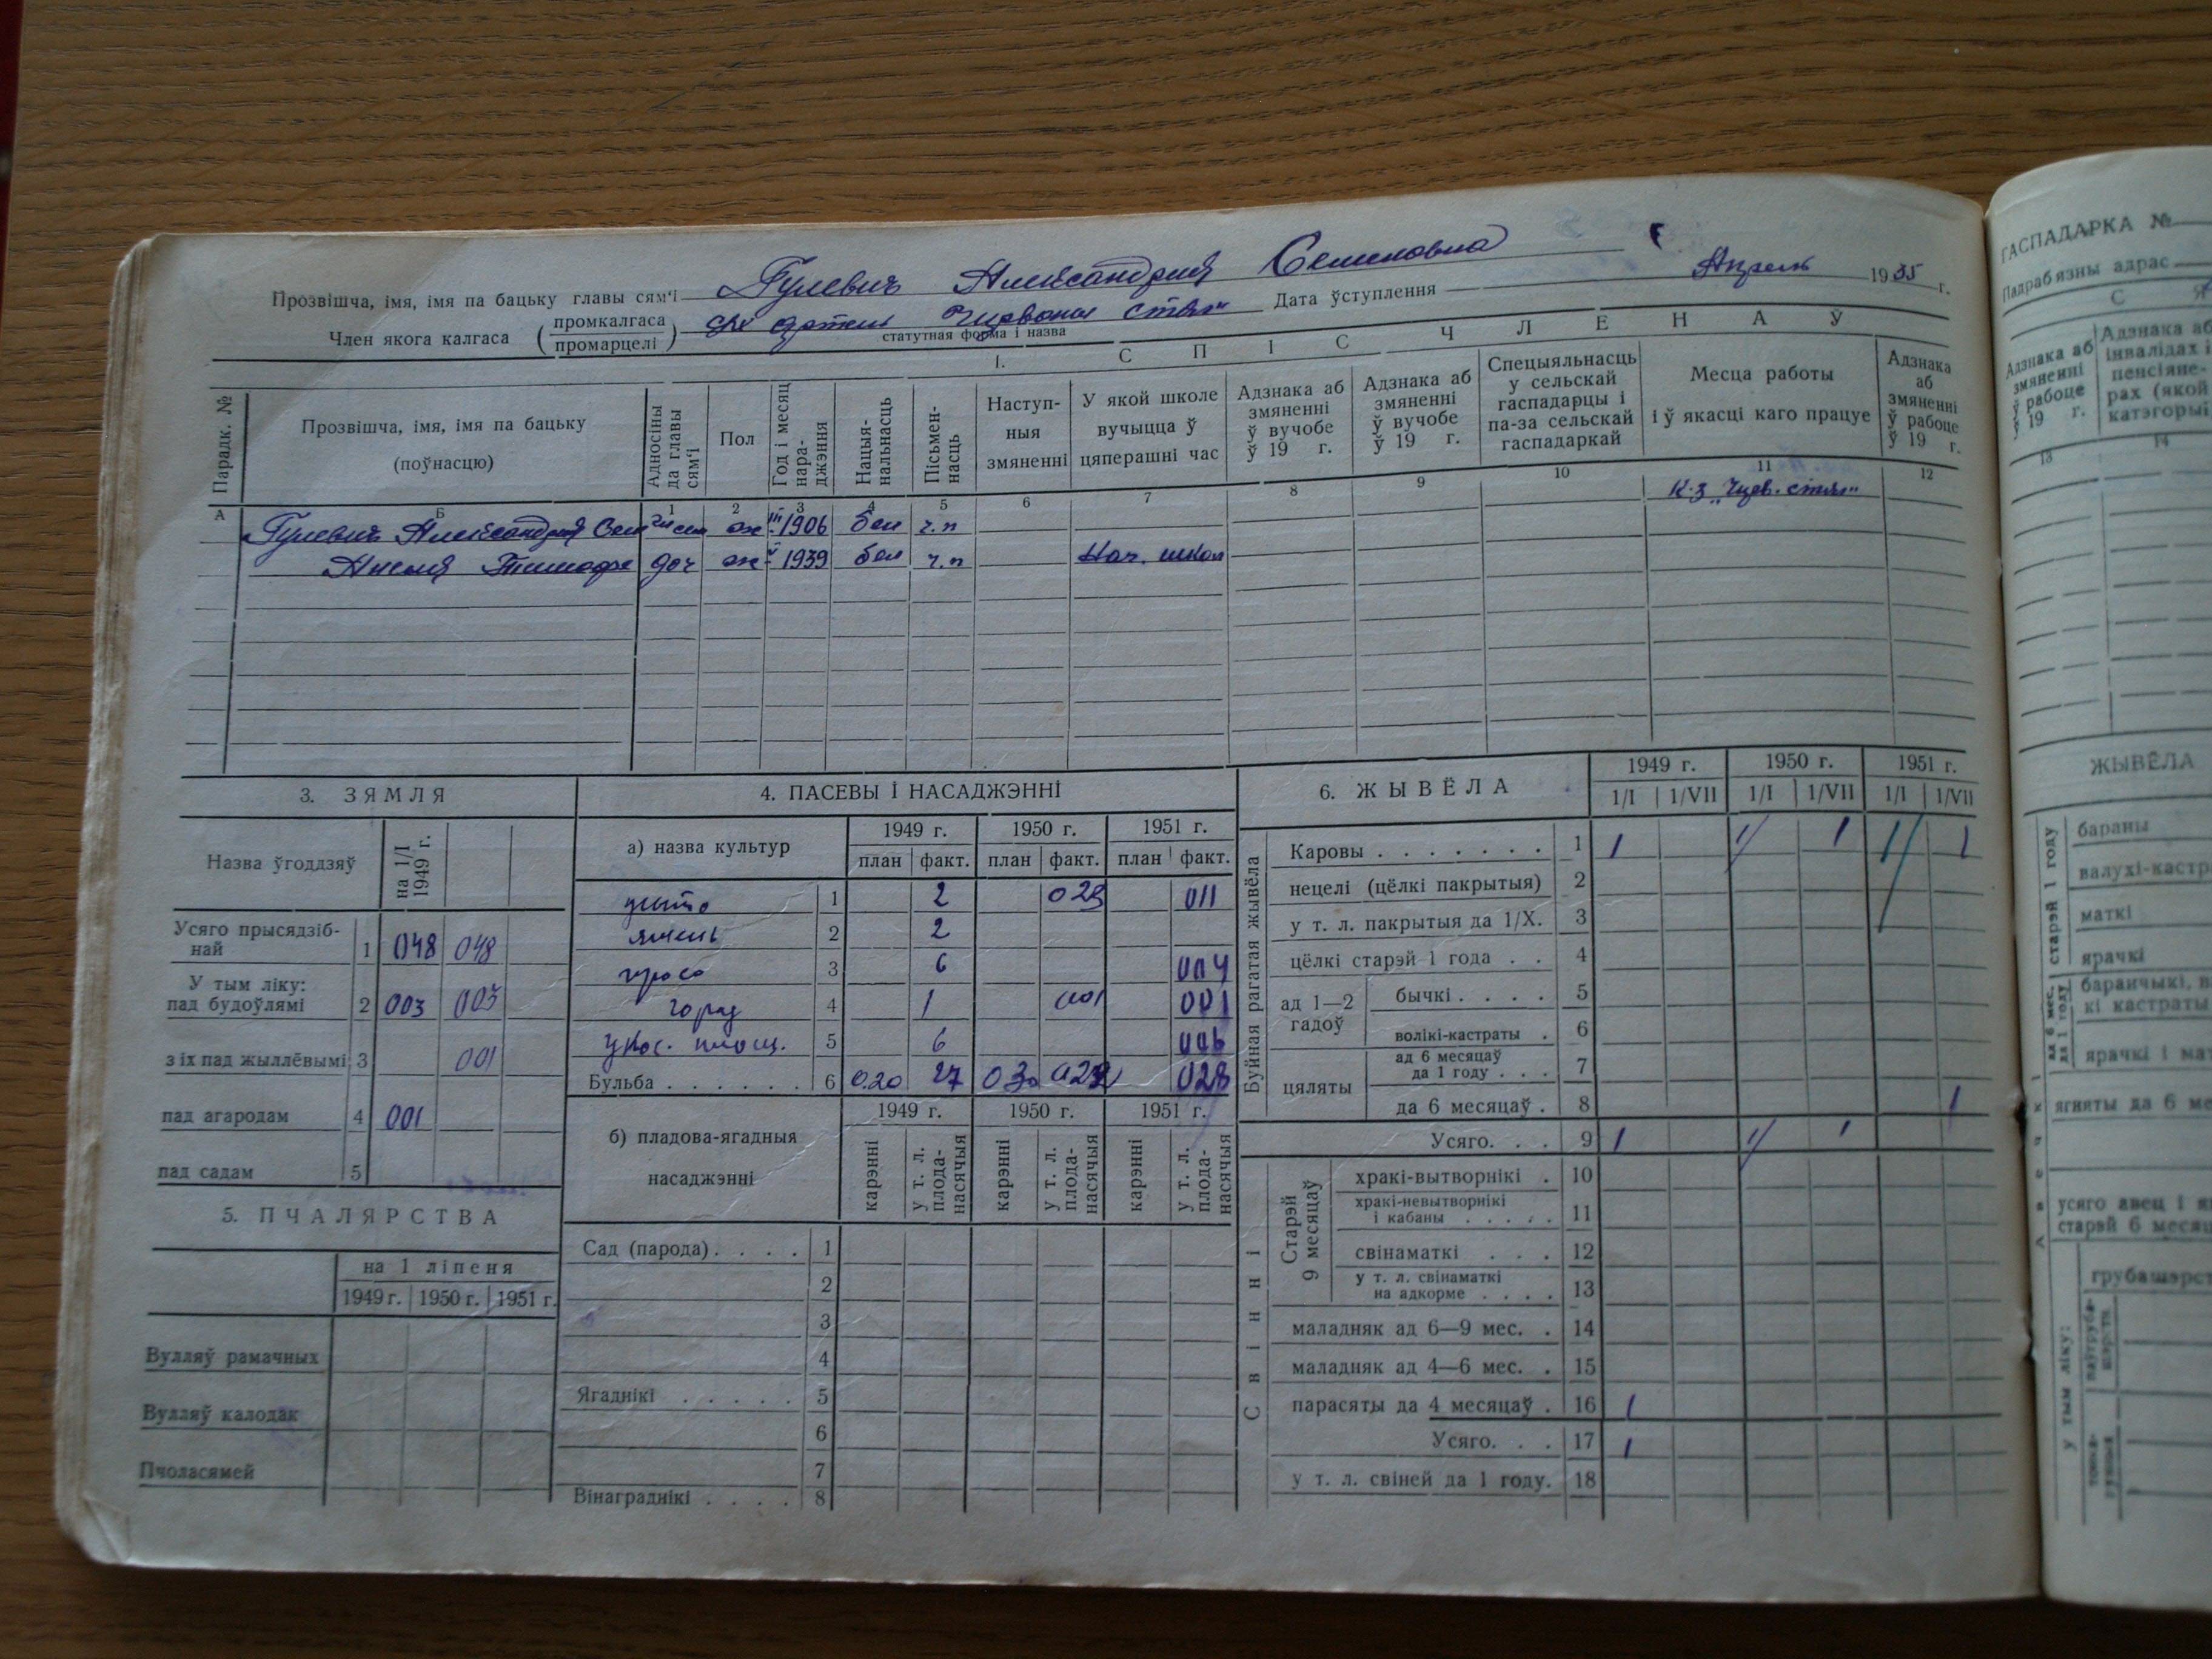 Прозвішча, імя, імя па бацьку главы сям'і Гулевич Александра Семеновна
Член якога калгаса (промкалгаса промарцелі) с/х артель "Чырвоны стяг" Дата ўступлення Апрель 1935 г.
статутная форма і назва
1. СПІС ЧЛЕНАЎ
Парадк. №
Прозвішча, імя, імя па бацьку (поўнасцю)
Адносіны да главы сям'і
Пол
Год і месяц нараджэння
Нацыянальнасць
Пісьменнасць
Наступныя змяненні
У якой школе вучыцца ў цяперашні час
Адзнака аб змяненні ў вучобе ў 19 г.
Адзнака аб змяненні ў вучобе ў 19 г.
Спецыяльнасць у сельскай гаспадарцы і па-за сельскай гаспадаркай
Месца работы і ў якасці каго працуе
Адзнака аб змяненні ў рабоце ў 19 г.
А Б 1 2 3 4 5 6 7 8 9 10 11 12
Гулевич Александра Сем ж III 1906 бел ч.п К-з "Чырв. стяг"
доч ж V 1939 бел ч.п Нач. школ
3. ЗЯМЛЯ
Назва ўгоддзяў на 1/I 1949 г.
Усяго прысядзібнай 1 048 048
У тым ліку: пад будоўлямі 2 003 003
з іх пад жыллёвымі 3 001
пад агародам 4 001
пад садам 5
5. ПЧАЛЯРСТВА
на 1 ліпеня
1949 г. 1950 г. 1951 г.
Вулляў рамачных
Вулляў калодак
Пчоласямей
4. ПАСЕВЫ І НАСАДЖЭННІ
а) назва культур 1949 г. 1950 г. 1951 г.
план факт. план факт. план факт.
жыто 1 2 023 011
ячмень 2 2
просо 3 6 004
город 4 1 001 001
Укос. площ. 5 6 006
Бульба . . . . . . 6 0.20 27 030 028
б) пладова-ягадныя насаджэнні
1949 г. 1950 г. 1951 г.
карэнні у т. л. плоданасячыя карэнні у т. л. плоданасячыя карэнні у т. л. плоданасячыя
Сад (парода) . . . . 1
2
3
4
Ягаднікі . . . . . 5
6
7
Вінаграднікі . . . . 8
6. ЖЫВЁЛА 1949 г. 1950 г. 1951 г.
1/I 1/VII 1/I 1/VII 1/I 1/VII
Буйная рагатая жывёла
Каровы . . . . . . . 1 1 1 1 1 1
нецелі (цёлкі пакрытыя) 2
у т. л. пакрытыя да 1/X. 3
цёлкі старэй 1 года . . 4
ад 1—2 гадоў
бычкі . . . . 5
волікі-кастраты . 6
цяляты
ад 6 месяцаў да 1 году . . . 7
да 6 месяцаў . 8 1
Усяго. . . 9 1 1 1
Свінні
Старэй 9 месяцаў
хракі-вытворнікі . 10
хракі-невытворнікі і кабаны . . . . . 11
свінаматкі . . . 12
у т. л. свінаматкі на адкорме . . . . 13
маладняк ад 6—9 мес. . 14
маладняк ад 4—6 мес. . 15
парасяты да 4 месяцаў . 16 1
Усяго. . . 17 1
у т. л. свіней да 1 году. 18
ГАСПАДАРКА №
Падрабязны адрас
Адзнака аб змяненні ў рабоце ў 19 г.
13 14
ЖЫВЁЛА
старэй 1 году
бараны
маткі
яркі
у тым ліку: